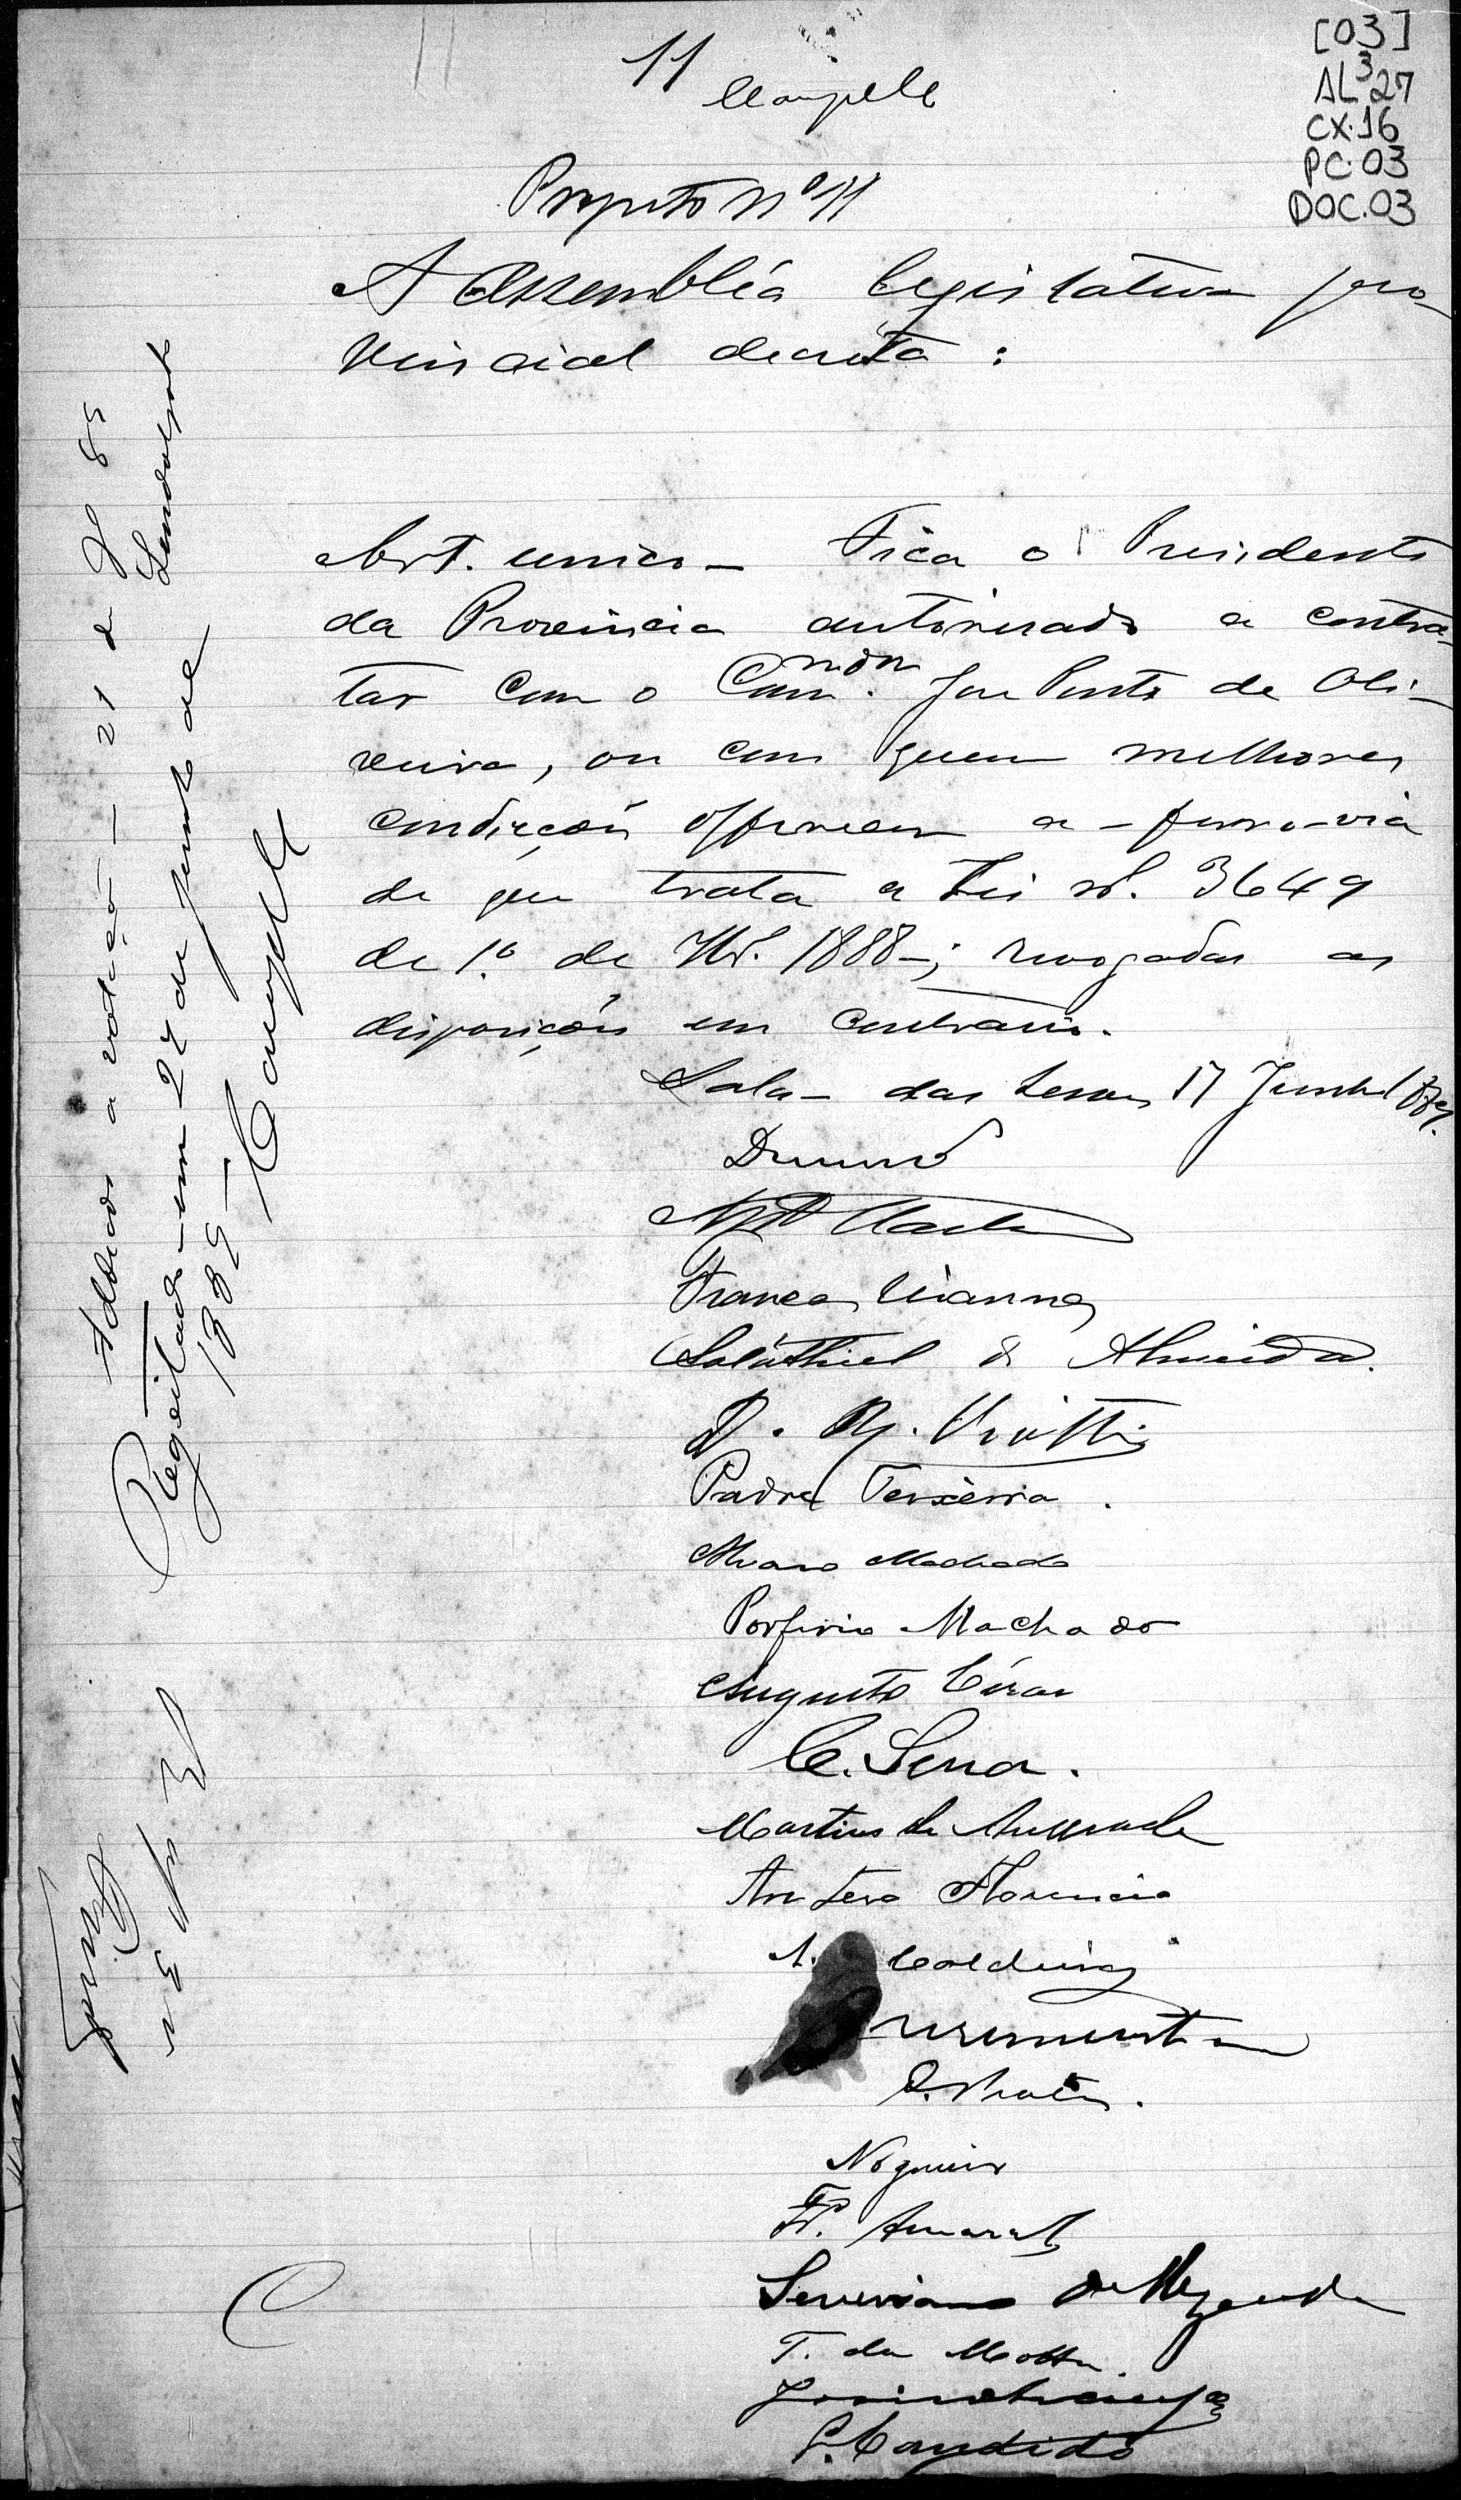 [03]
AL³27
CX.16
PC.03
DOC.03
11
Campelo
Projecto Nº 11
A Assembléa legislativa pro-
vincial decreta :
Art. unico - Fica o Presidente
da Provincia autorisado a contra-
tar com o Comm.dor José Pinto de Oli-
veira, ou com quem melhores
condicções offerecer a ferro-via
de que trata a Lei nº. 3649
de 1.º de 7br. 1888 -; revogadas as
disposições em contrario.
Sala das Sessões 17 Junho 1889.
Drumond
Franca Vianna
Salathiel de Almeida.
Padre Teixeira.
Alvaro Machado
Porfirio Machado
Augusto Cesar
C. Sena.
Martins de Andrade
Antero Florencio
A. Caldeira
O. Prates.
Nogueira
F. Amaral
Severiano de Rezende
T. da Motta.
C. Candido
Adiada a votação - 21 de
Regeitado em 22 de junho de
1889 - Campelo